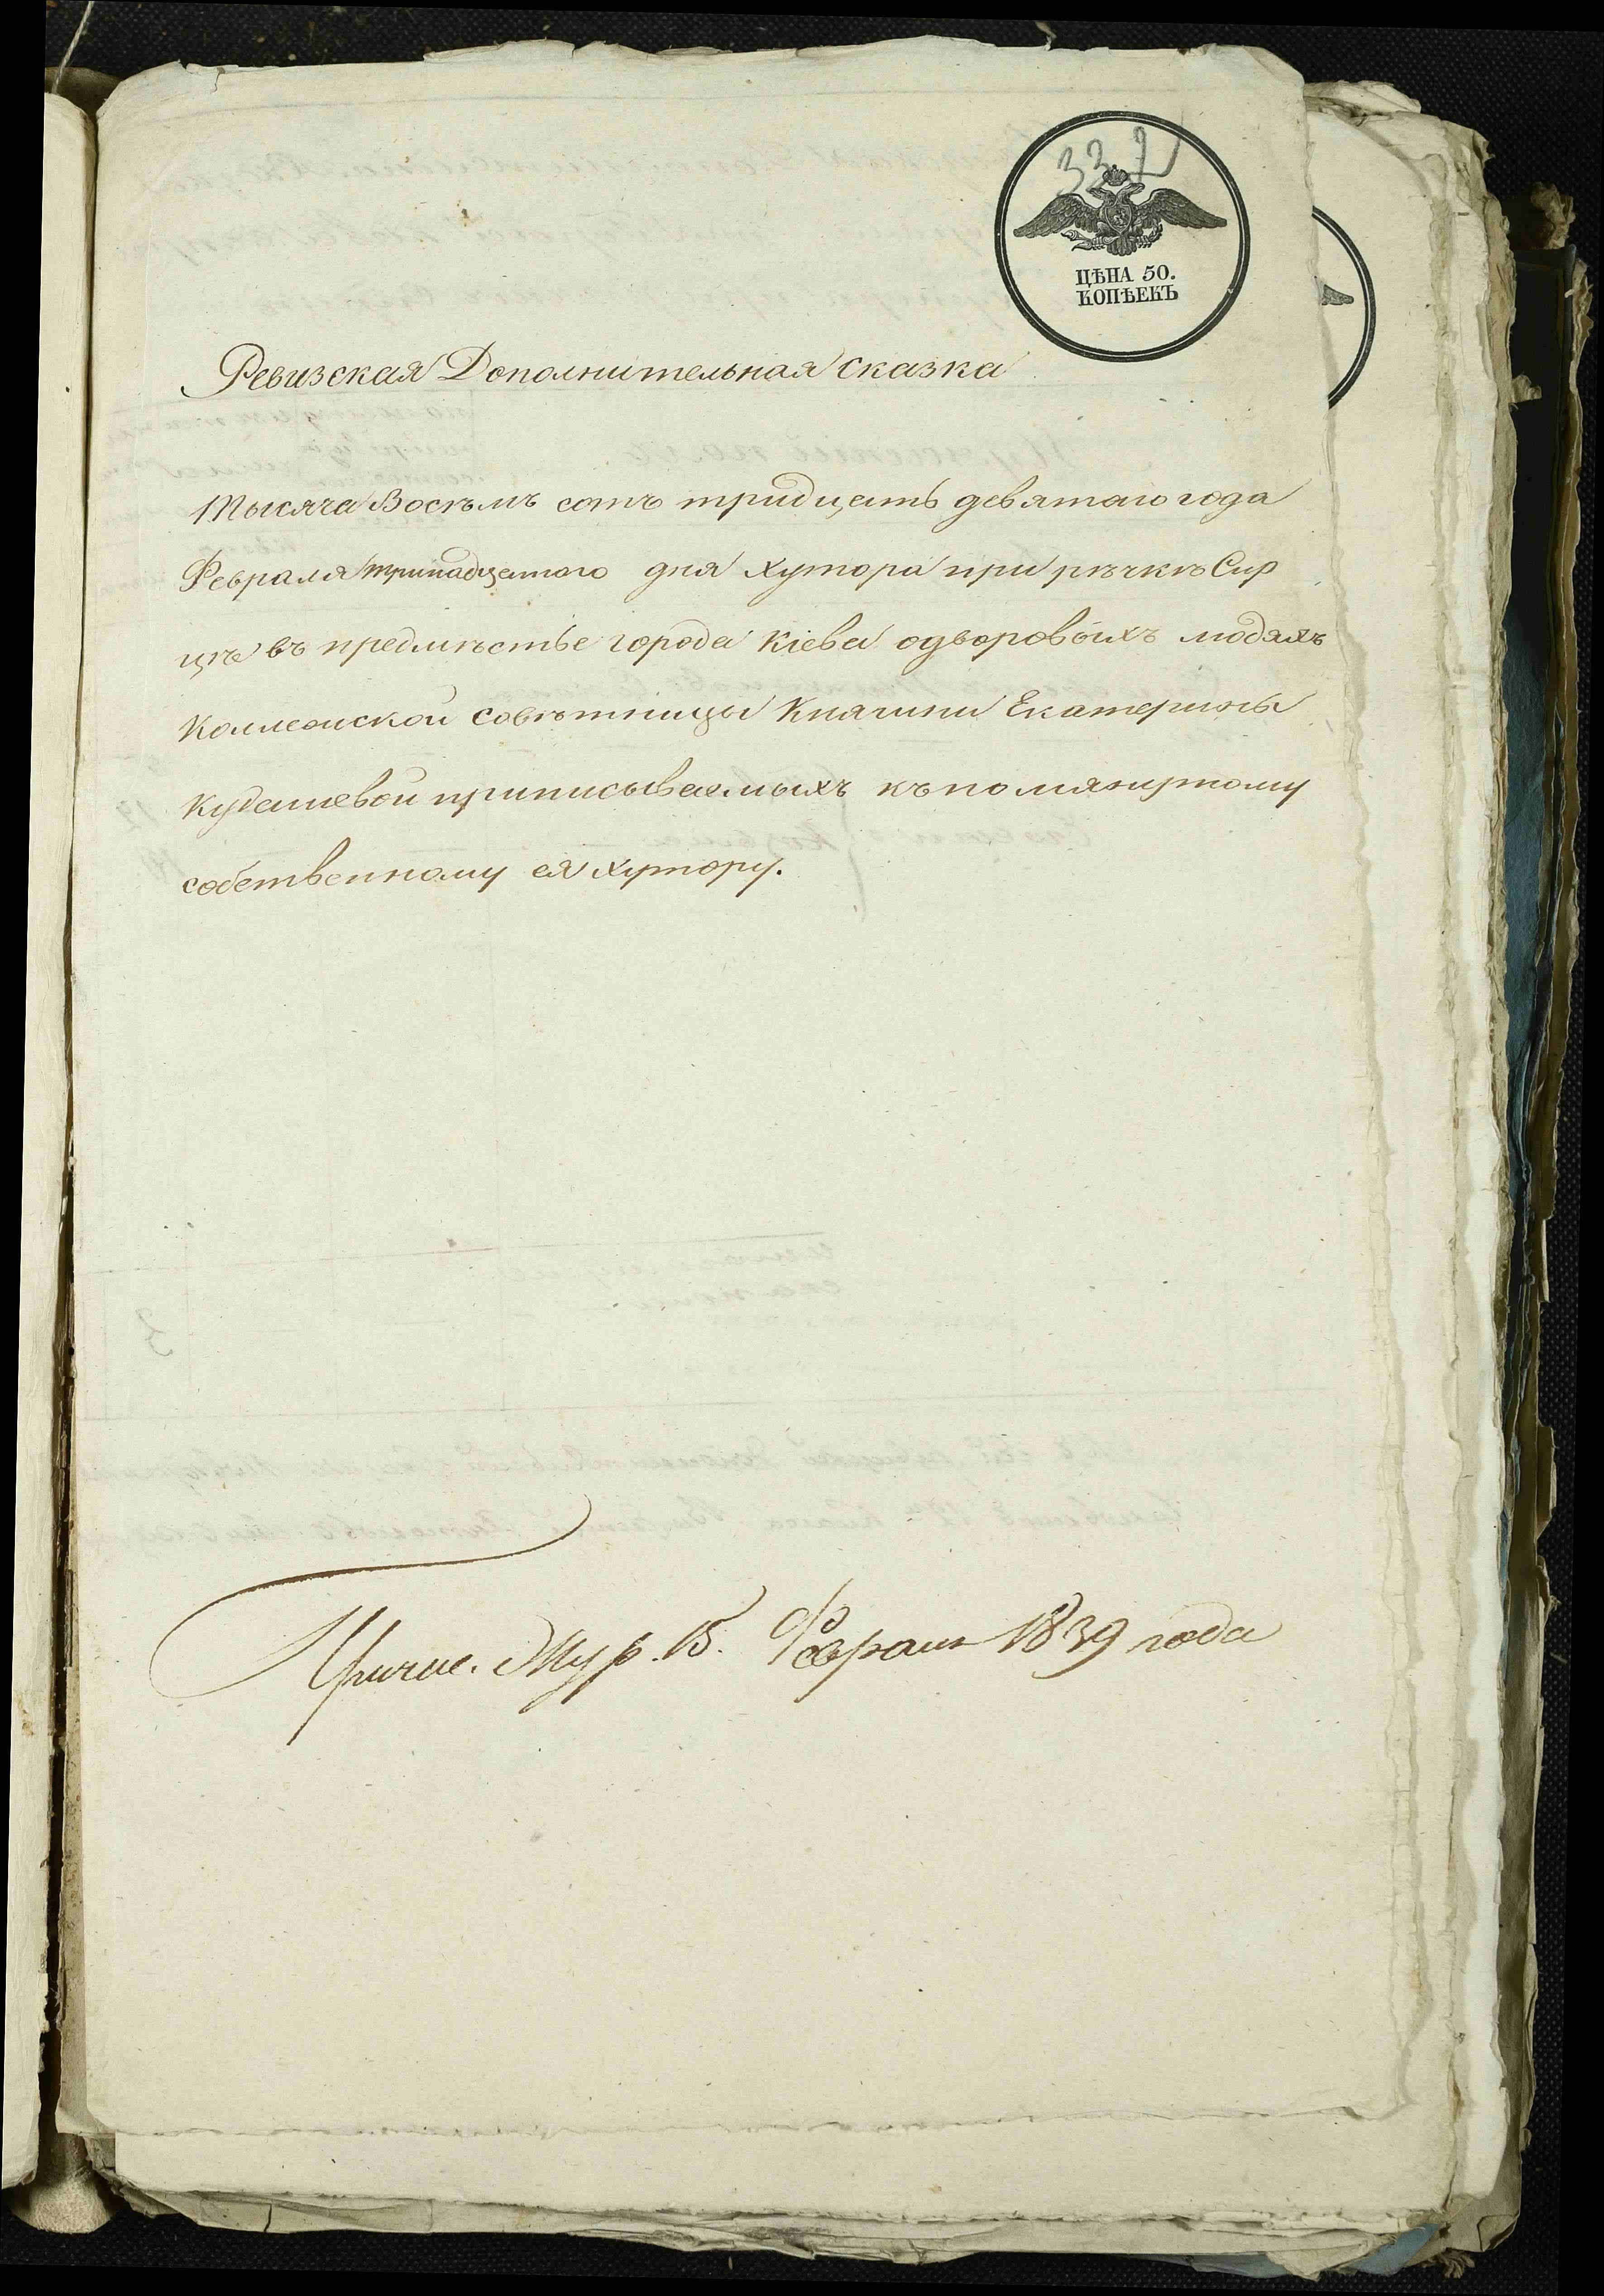 332
ЦѢНА 50.
КОПѢЕКЪ
Ревизская Дополнительная сказка
Тысяча Восѣмъ сотъ тридцать девятаго года
Февраля тринадцатого дня хутора при рѣчкѣ Сир
цѣ въ предмѣстье города Кіева одворовыхъ людяхъ
Коллежской совѣтницы Княгини Екатерины
Кудашевой приписываемыхъ къ помянутому
собственному ея хутору.
15. Февраля 1839 года